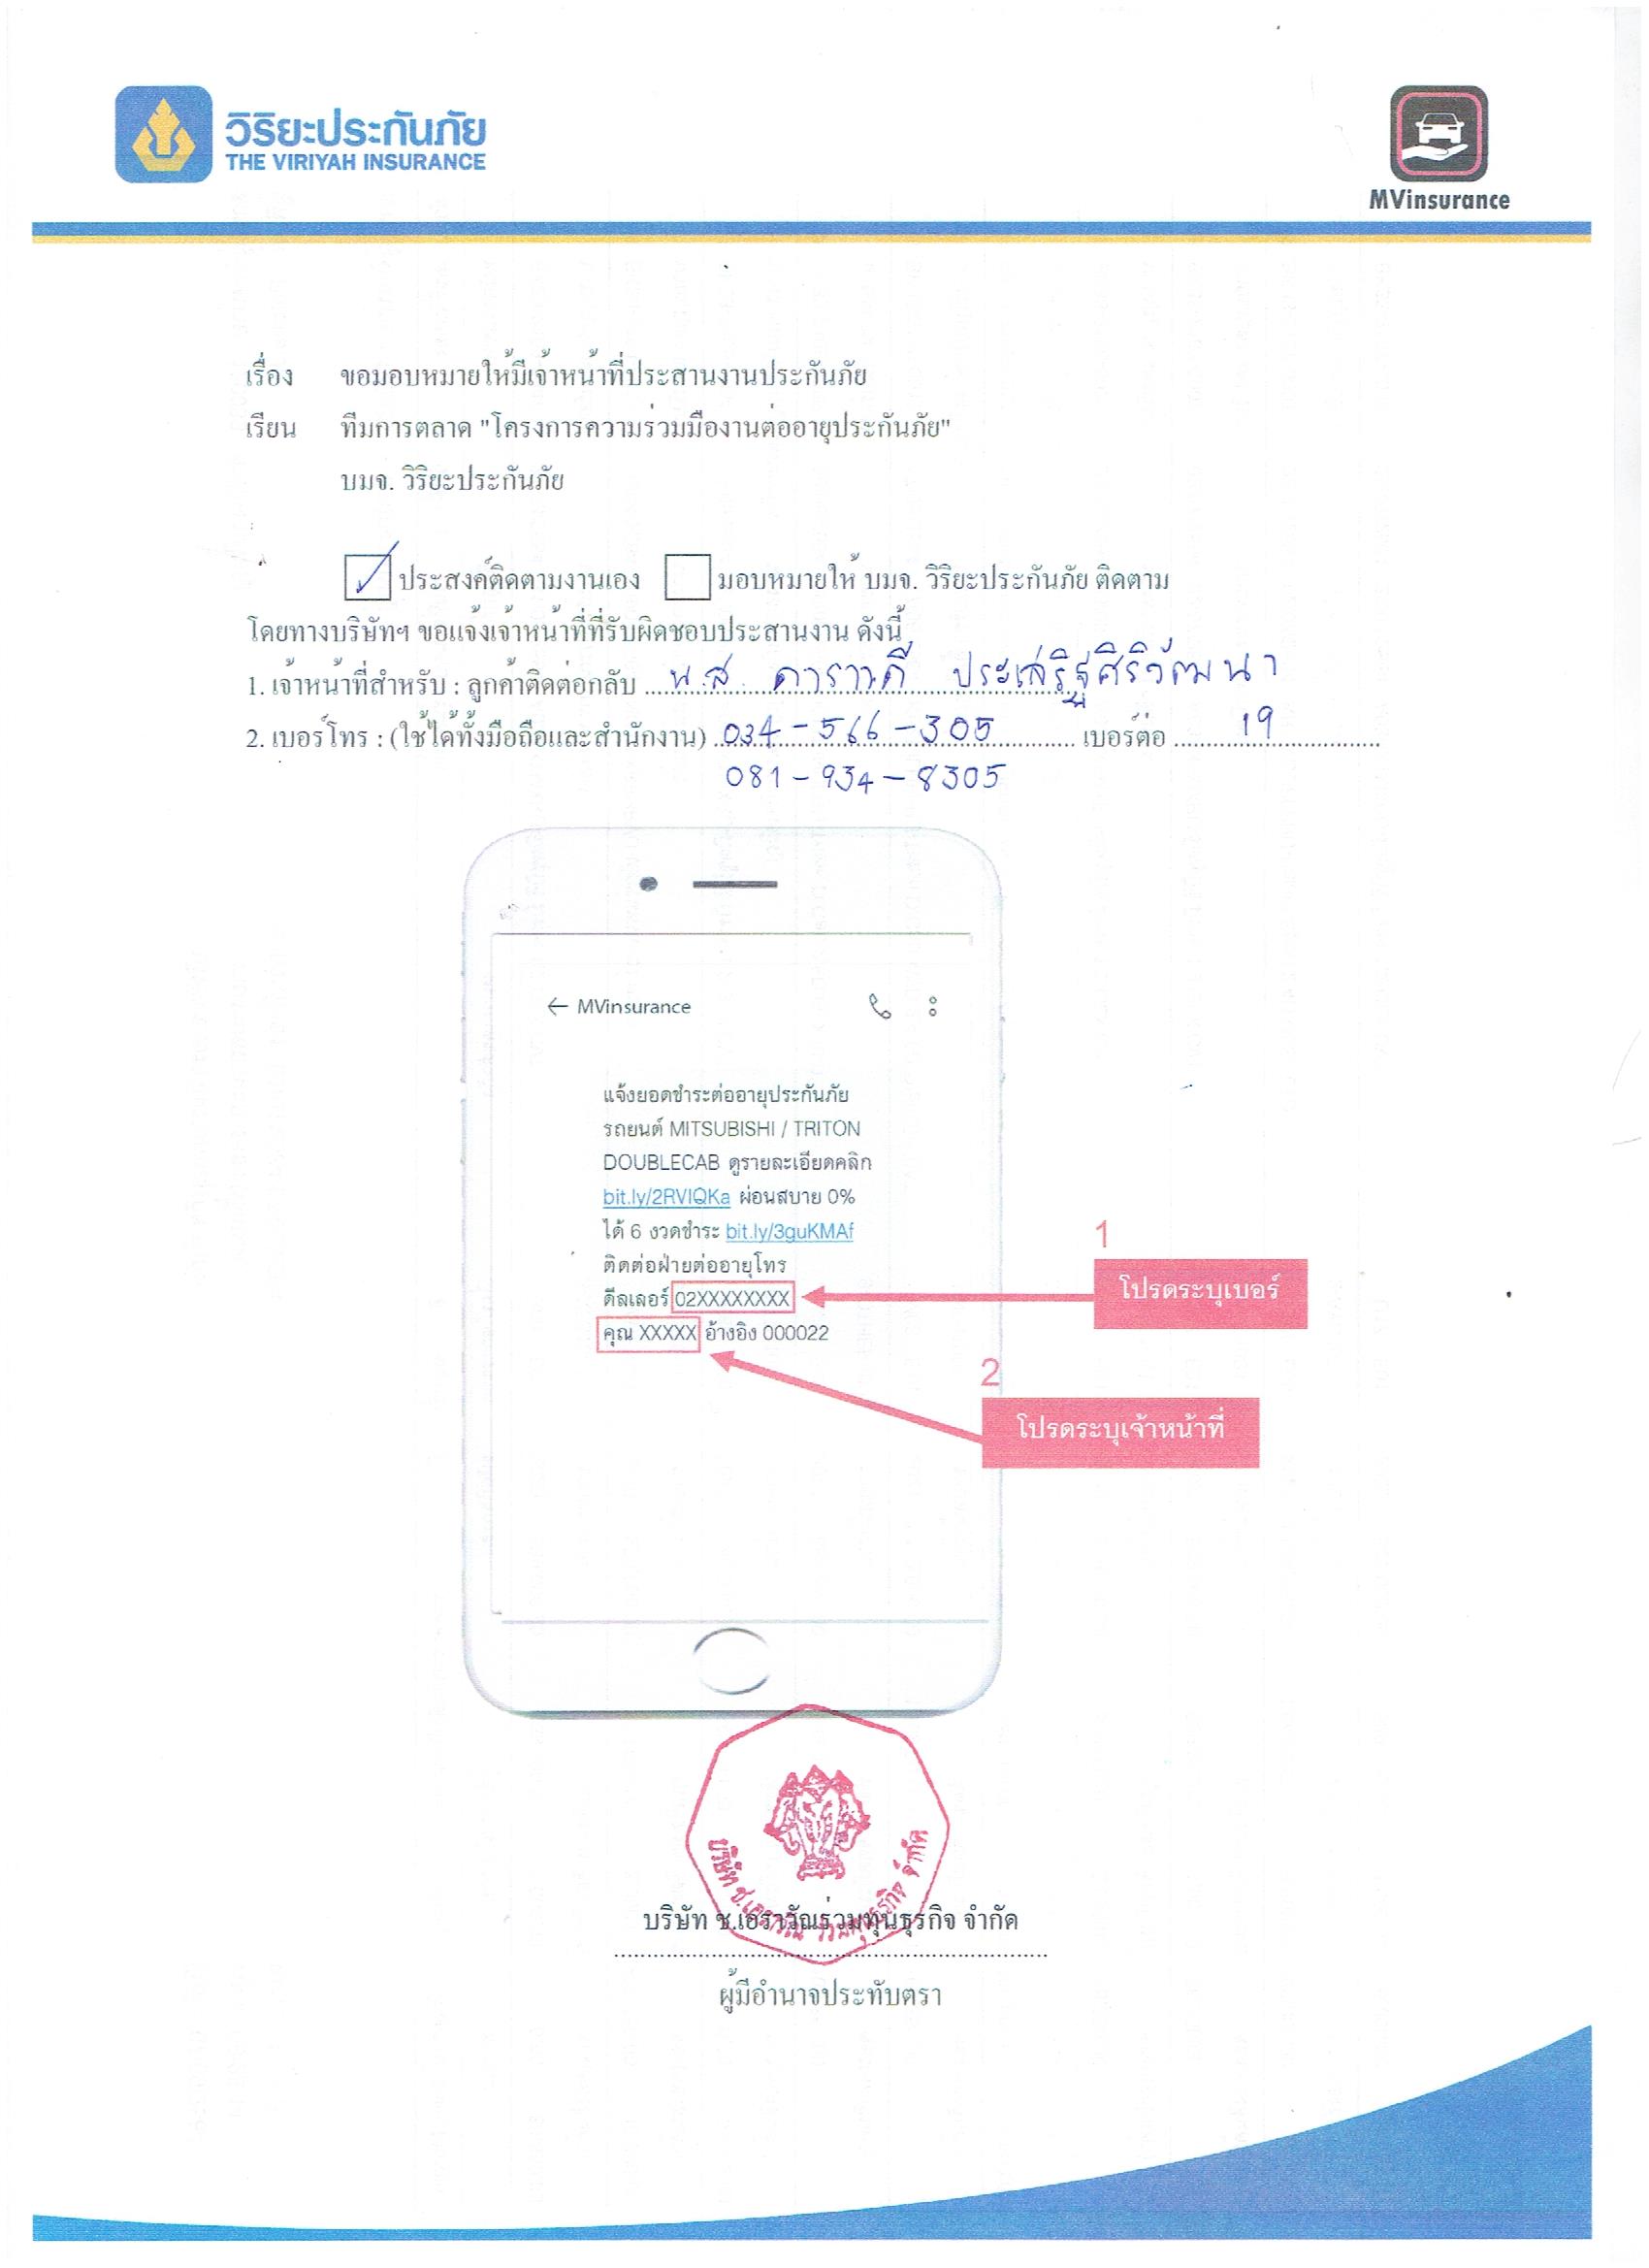 วิริยะประกันภัย
THE VIRIYAH INSURANCE
MVinsurance
เรื่อง ขอมอบหมายให้มีเจ้าหน้าที่ประสานงานประกันภัย
เรียน ทีมการตลาด "โครงการความร่วมมืองานต่ออายุประกันภัย"
บมจ. วิริยะประกันภัย
ประสงค์ติดตามงานเอง มอบหมายให้ บมจ. วิริยะประกันภัย ติดตาม
โดยทางบริษัทฯ ขอแจ้งเจ้าหน้าที่ที่รับผิดชอบประสานงาน ดังนี้
1. เจ้าหน้าที่สำหรับ : ลูกค้าติดต่อกลับ น.ส. ดาราวดี ประเสริฐศิริวัฒนา
2. เบอร์โทร : (ใช้ได้ทั้งมือถือและสำนักงาน) 034-566-305 เบอร์ต่อ 19
081-934-8305
← MVinsurance
แจ้งยอดชำระต่ออายุประกันภัย
รถยนต์ MITSUBISHI / TRITON
DOUBLECAB ดูรายละเอียดคลิก
bit.ly/2RVIQKa ผ่อนสบาย 0%
ได้ 6 งวดชำระ bit.ly/3guKMAf
ติดต่อฝ่ายต่ออายุโทร
ดีลเลอร์ 02XXXXXXXX
คุณ XXXXX อ้างอิง 000022
1
โปรดระบุเบอร์
2
โปรดระบุเจ้าหน้าที่
บริษัท ช.เอราวัณ ร่วมทุนธุรกิจ จำกัด
บริษัท ช.เอราวัณร่วมทุนธุรกิจ จำกัด
ผู้มีอำนาจประทับตรา